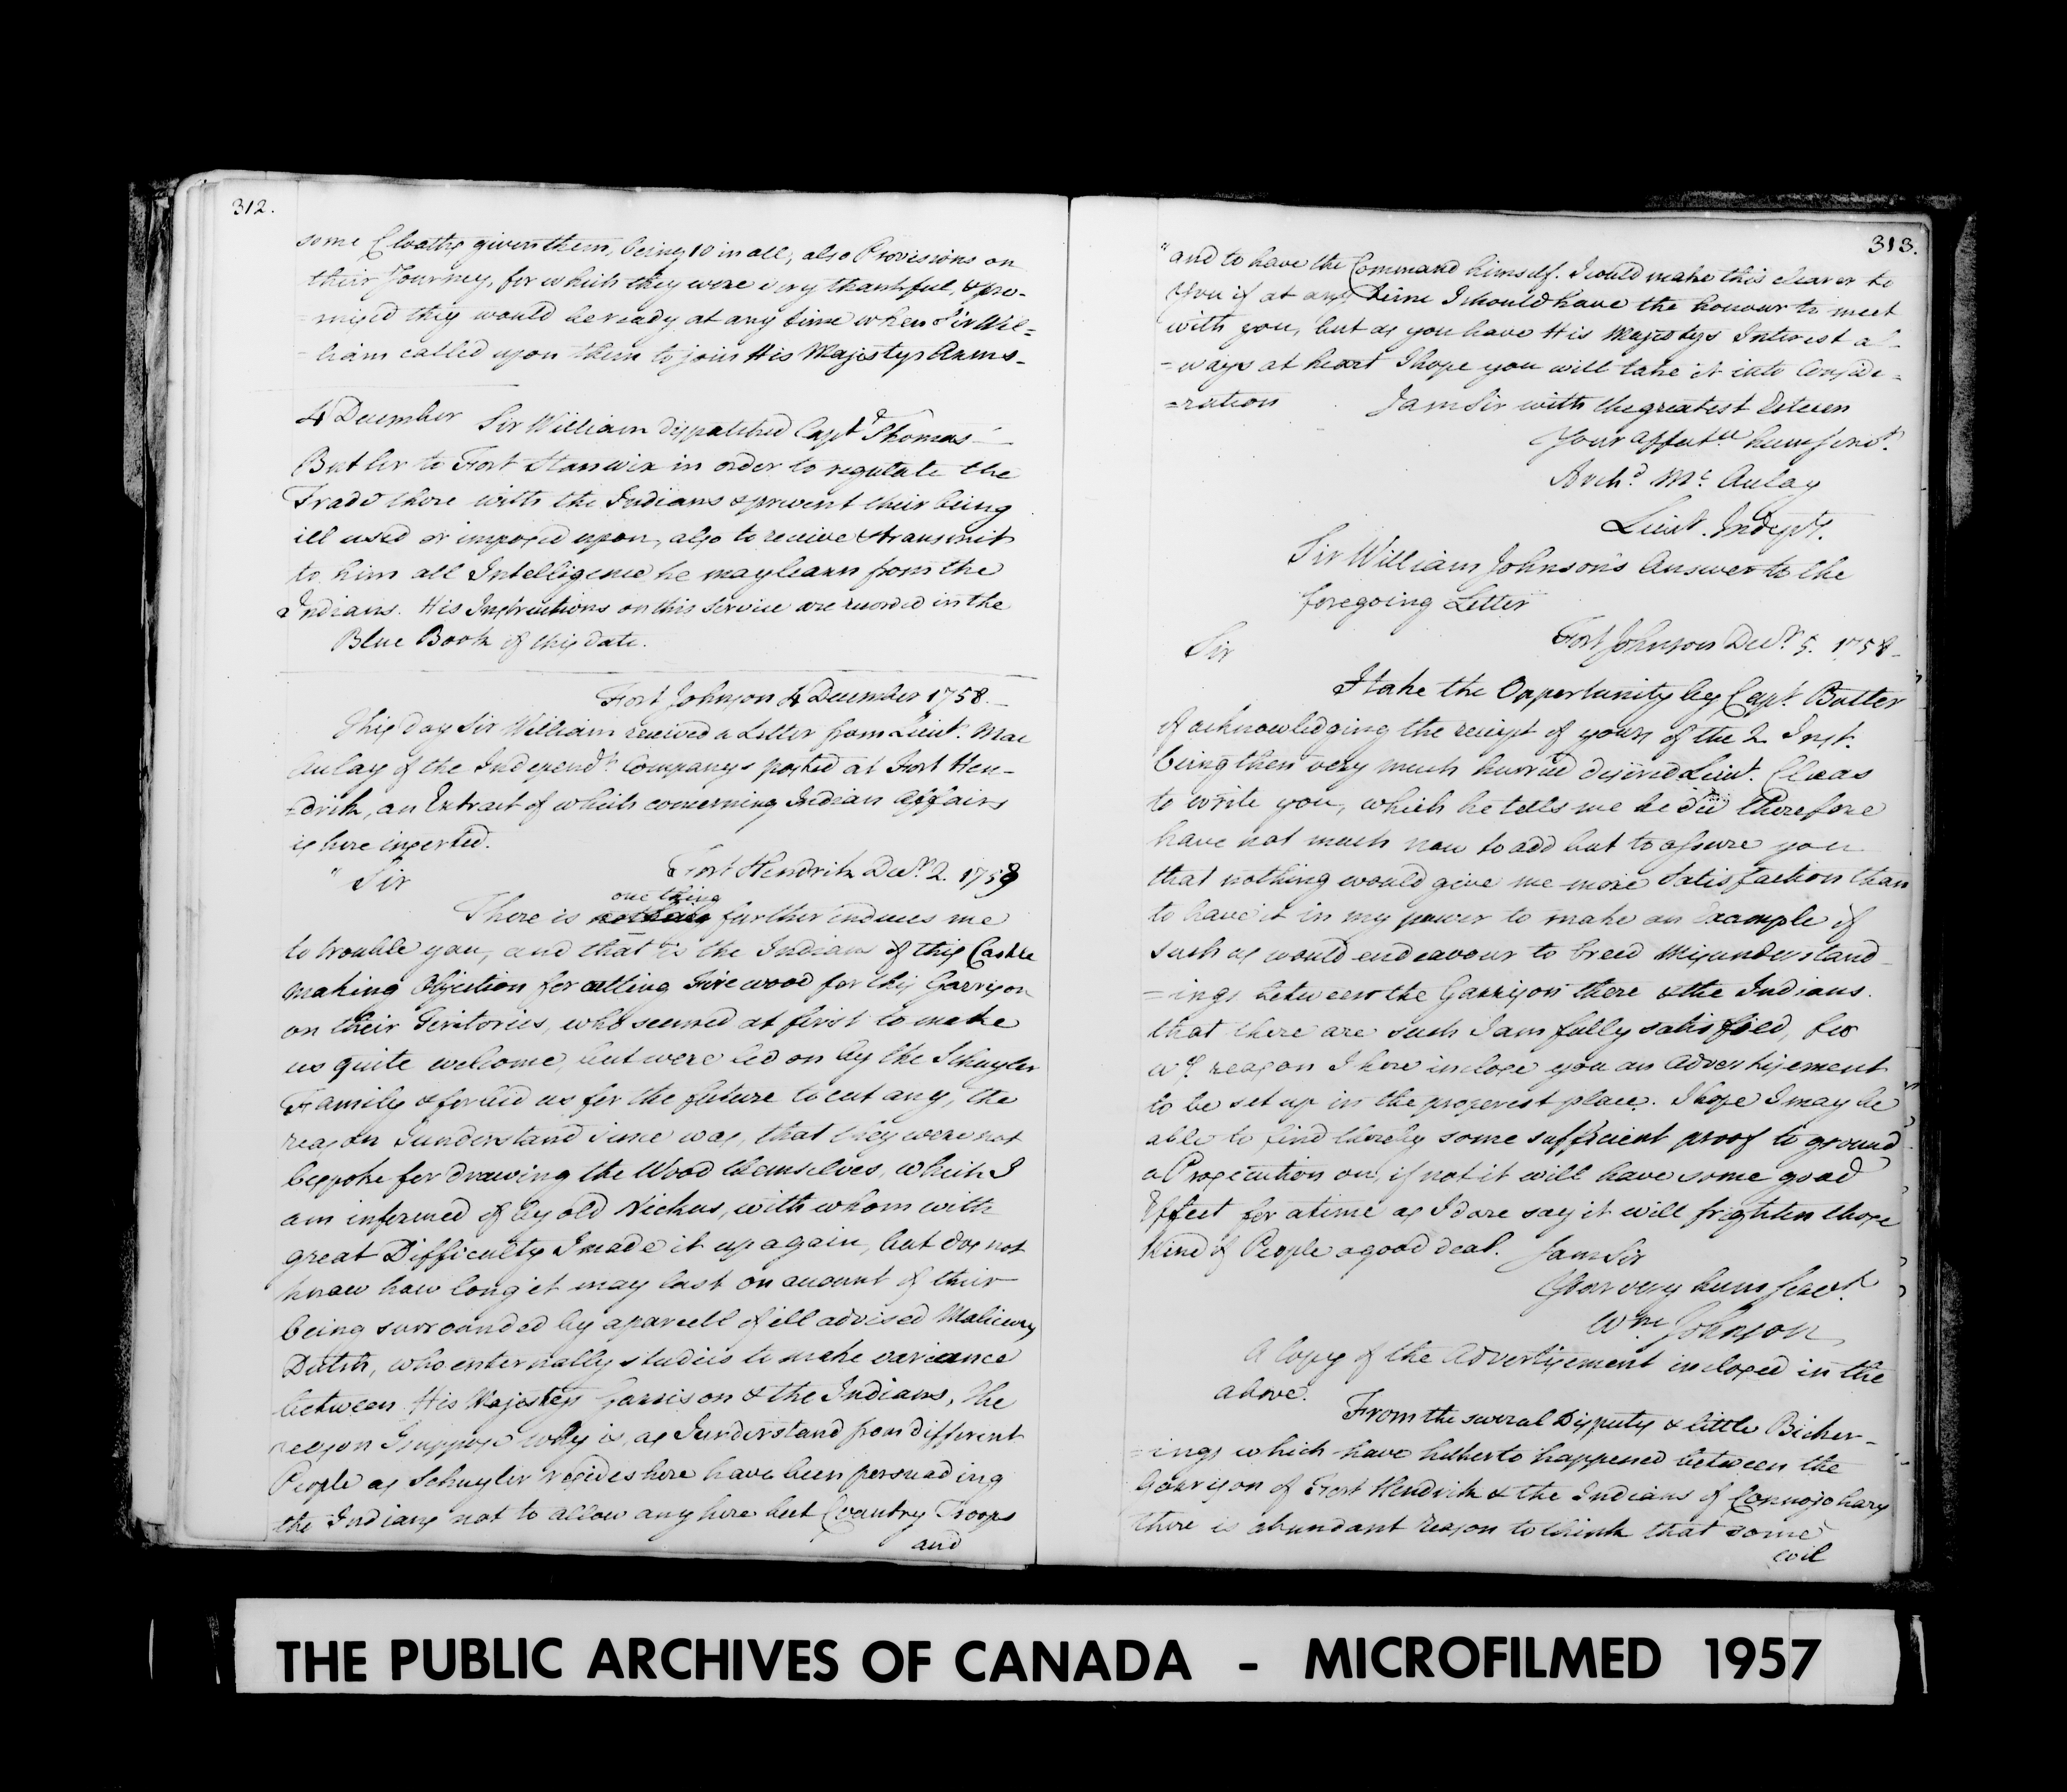 312.
some Cloaths given them, being 10 in all, also Provisions on
their Journey, for which they were very thankful, & pro-
mised they would be ready at any time when Sir Wil=
liam called upon them to join His Majestys Arms-
4 December Sir William dispatched Capt Thomas
Butler to Fort Stanwix in order to regulate the
Trade there with the Indians & prevent their being
ill used or imposed upon, also to receive & transmit
to him all Intelligence he may learn from the
Indians. His Instructions on this Service are recorded in the
Blue Book of this date.
Fort Johnson 4 December 1758.
This day Sir William received a Letter from Lieut. Mac
Aulay of the Independt. Companys posted at Fort Hen-
=drik, an Extract of which concerning Indian Affairs
is here inserted.
" Sir Fort Hendrik Decr. 2. 1758
one thing
There is nothing further induces me
to trouble you, and that is the Indians of this Castle
making Objection for cutting Fire wood for this Garrison
on their Teritories, who seemed at first to make
us quite welcome, but were led on by the Schuyler
Family & forbid us for the future to cut any, the
reason I understand since was, that they were not
bespoke for drawing the Wood themselves, which I
am informed of by old Nickus, with whom with
great Difficulty I made it up again, but dos not
know how long it may last on account of their
being surrounded by a parcell of ill advised Malicious
Dutch, who enternally studies to make variance
between His Majestys Garrison & the Indians, the
reason I suppose why is, as I understand from different
People as Schuyler resides here have been persuading
the Indians not to allow any here but Country Troops
and
313.
"and to have the Command himself. I could make this clearer to
you if at any time I should have the honour to meet
with you, but as you have His Majestys Interest al-
=ways at heart I hope you will take it into Conside=
=ration I am Sir with the greatest Esteem
Your affectte. hum Servt.
Archd. Mc. Aulay
Lieut. Indept.
Sir William Johnson's Answer to the
foregoing Letter
Fort Johnson Decr. 5. 1758
Sir
I take the Opportunity by Capt. Butler
of acknowledging the receipt of yours of the 2 Inst.
being then very much hurried desired Lieut. Claas
to write you, which he tells me he did therefore
have not much now to add but to assure you
that nothing would give me more Satisfaction than
to have it in my power to make an Example of
such as would endeavour to breed Misunderstand-
=ings between the Garrison there & the Indians.
that there are such I am fully satisfied, for
wch. reason I here inclose you an Advertisement
to be set up in the properest place. I hope I may be
able to find thereby some sufficient proof to ground
a Prosecution on, if not it will have some good
Effect for a time as I dare say it will frighten those
kind of People a good deal. I am Sir
Your very hum Servt.
Wm Johnson
A Copy of the Advertisement inclosed in the
above.
From the several Disputes & little Bicker-
=ings which have hitherto happened between the
Garrison of Fort Hendrik & the Indians of Connojohary
there is abundant reason to think that some
evil
THE PUBLIC ARCHIVES OF CANADA - MICROFILMED 1957